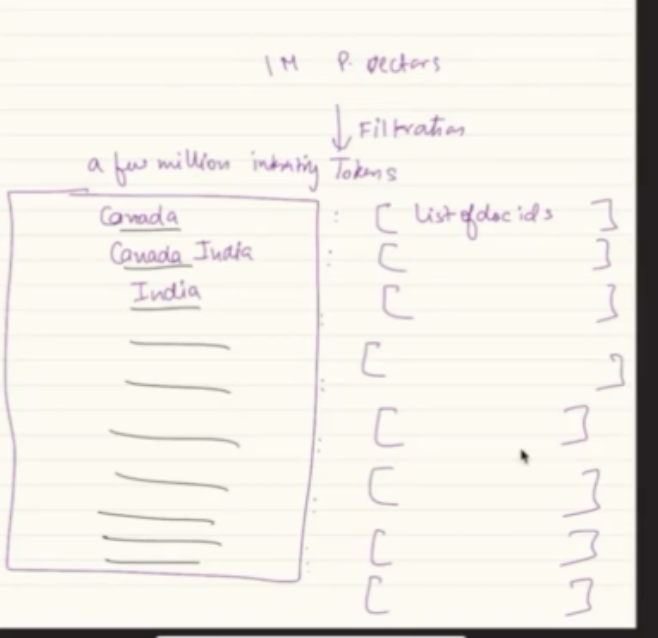 1M P. vectors
↓ Filtration
a few million Tokens
Canada : [ List of doc ids ]
Canada India : [ ]
India : [ ]
: [ ]
: [ ]
: [ ]
: [ ]
: [ ]